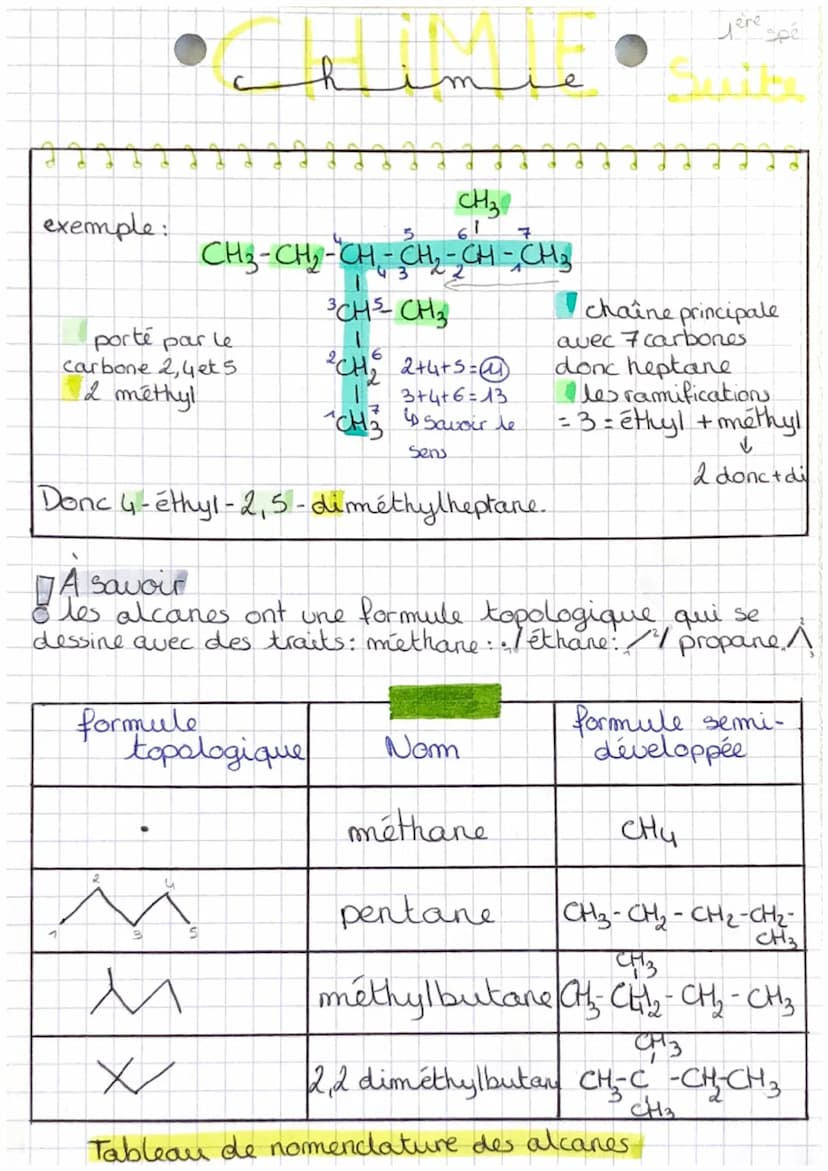 CHIMIE
chimie
1ère spé
Suite
exemple:
CH3
CH3-CH2-CH-CH2-CH-CH3
4 5 6 7
4 3 2 1
3CH5-CH3
2CH2 6
1CH3 7
porté par le
carbone 2,4 et 5
2 méthyl
2+4+5=11
3+4+6=13
↳ Savoir le
sens
chaîne principale
avec 7 carbones
donc heptane
les ramifications
= 3 = éthyl + méthyl
↓
2 donc + di
Donc 4-éthyl-2,5-diméthylheptane.
À savoir
les alcanes ont une formule topologique qui se
dessine avec des traits: méthane: . / éthane: / propane
formule topologique
Nom
formule semi-développée
méthane
CH4
1 2 3 4 5
pentane
CH3-CH2-CH2-CH2-
CH3
CH3
méthylbutane
CH3-CH2-CH2-CH3
CH3
2,2 diméthylbutan
CH3-C-CH2-CH3
CH3
Tableau de nomenclature des alcanes